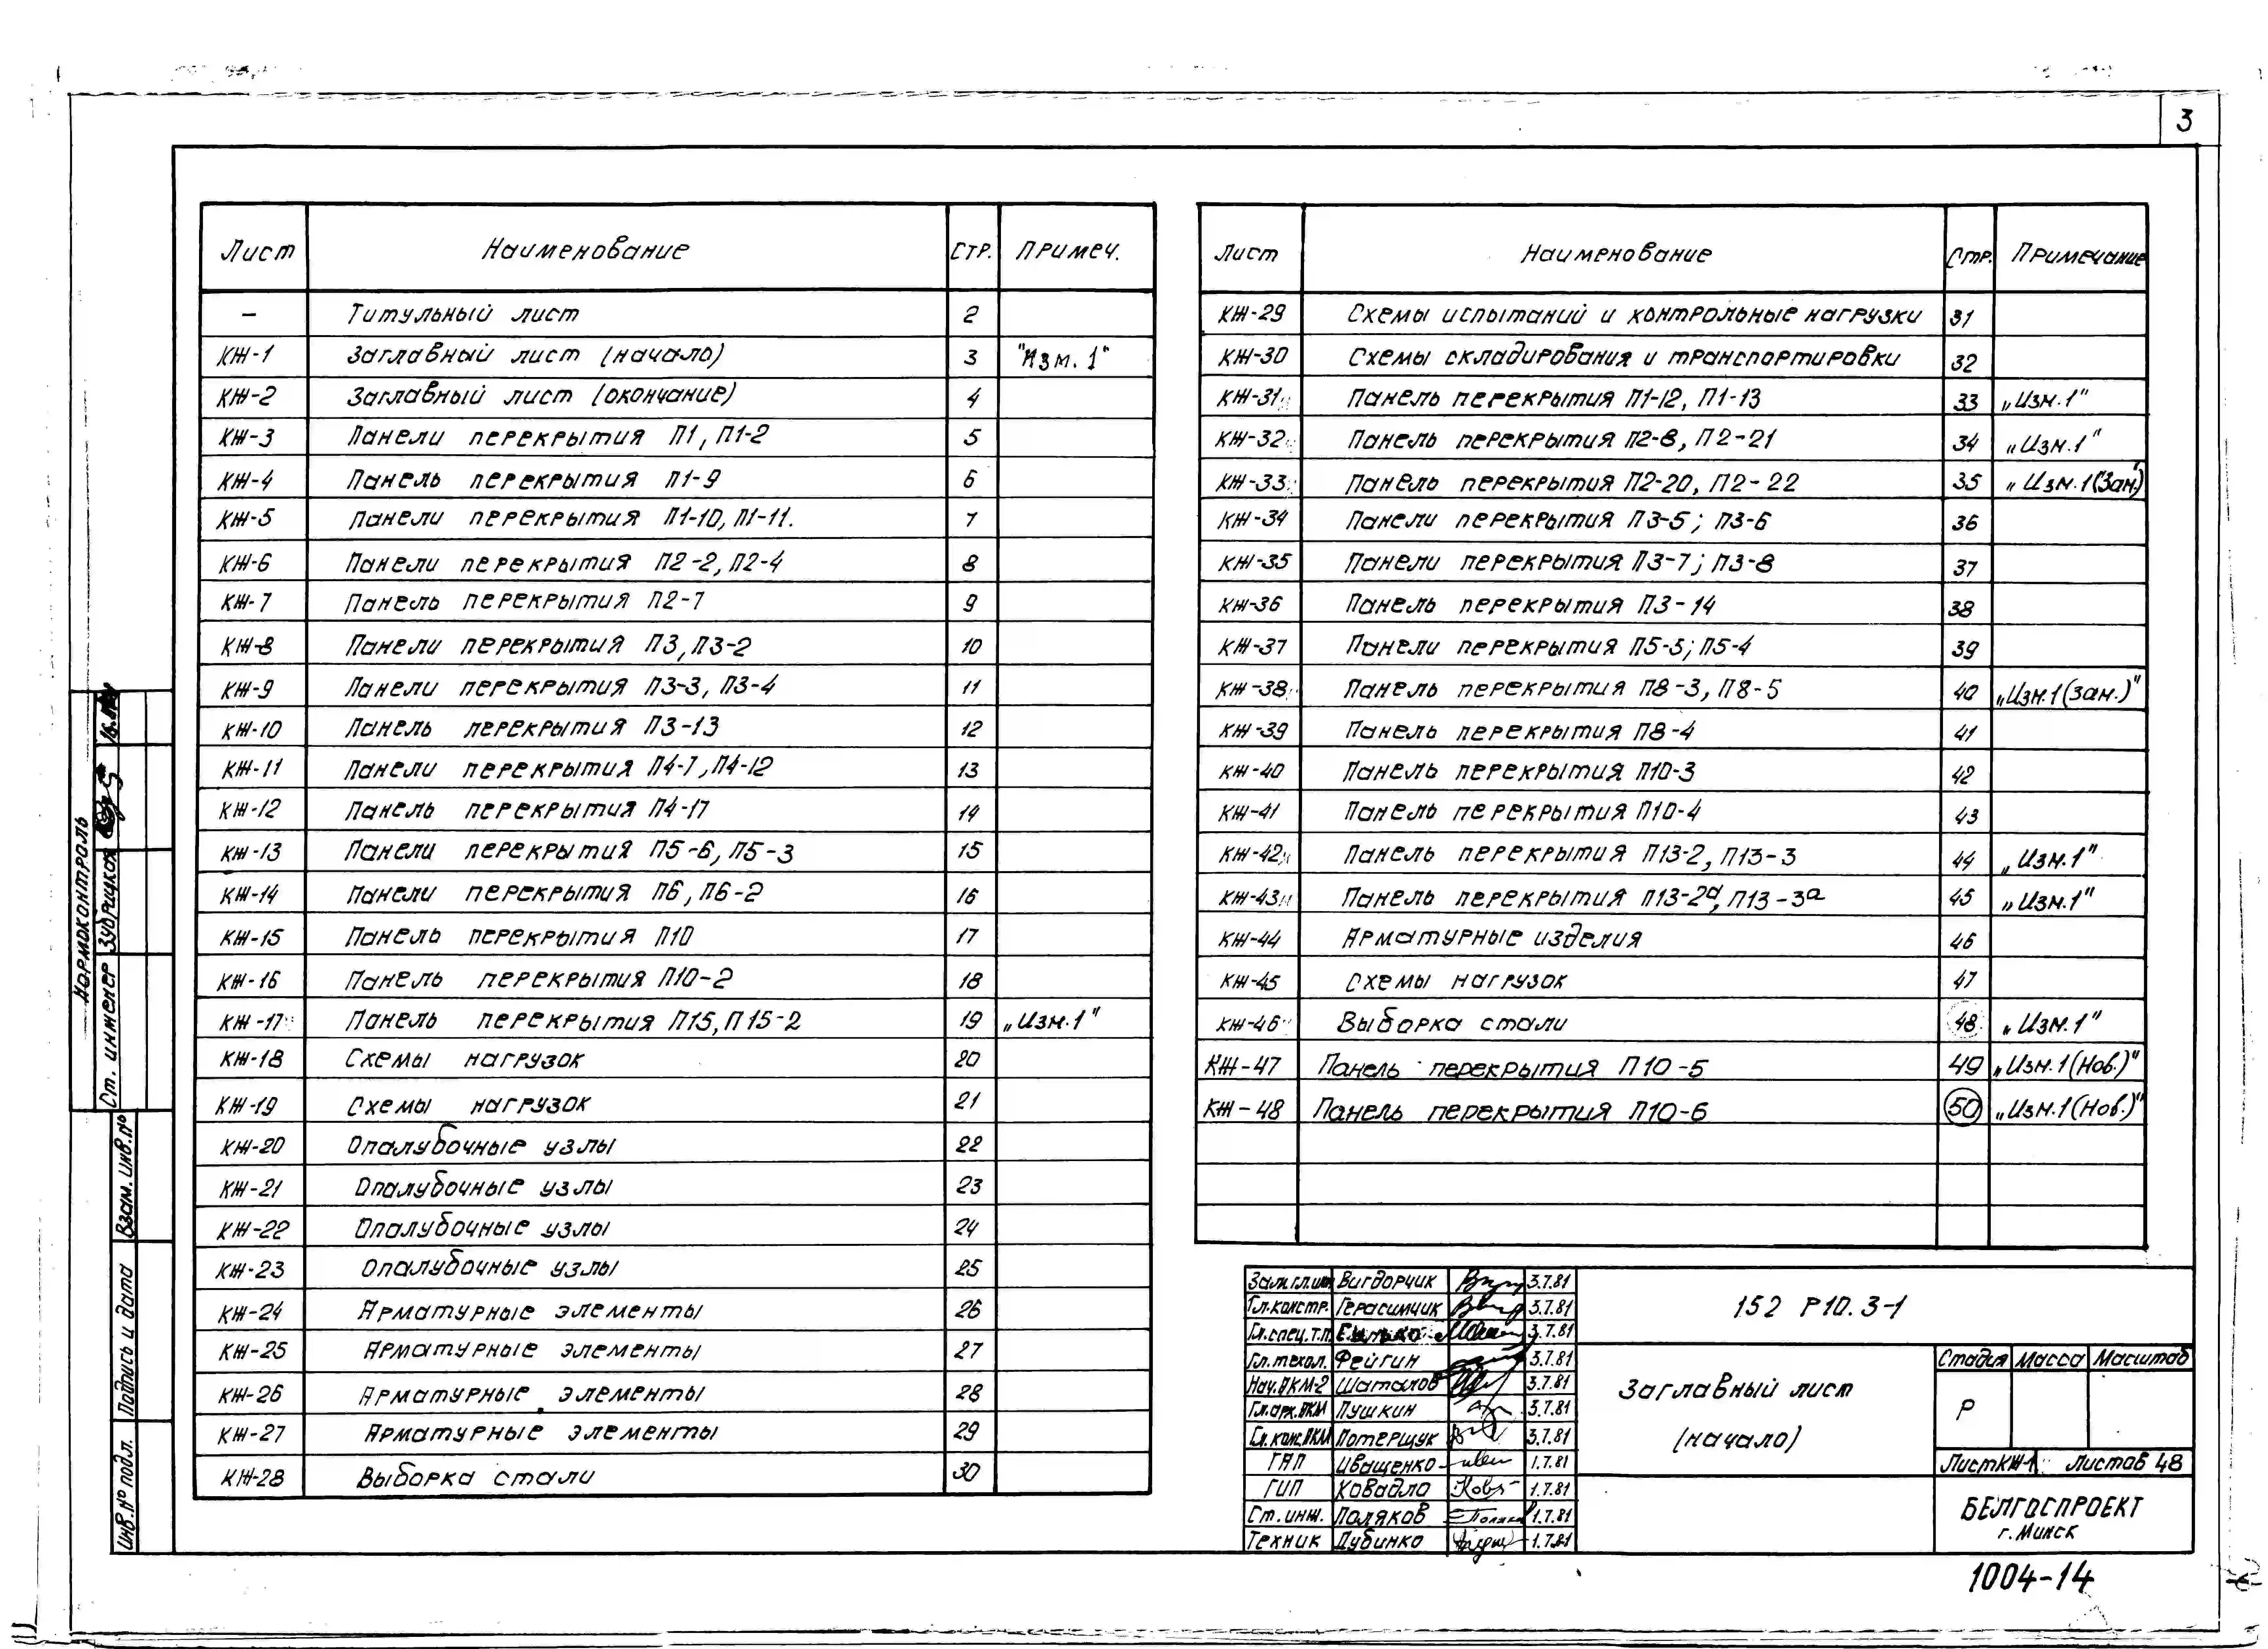 3
Лист Наименование Стр. Примеч.
– Титульный лист 2
КЖ-1 Заглавный лист (начало) 3 "Изм. 1"
КЖ-2 Заглавный лист (окончание) 4
КЖ-3 Панели перекрытия П1, П1-2 5
КЖ-4 Панель перекрытия П1-9 6
КЖ-5 Панели перекрытия П1-10, П1-11. 7
КЖ-6 Панели перекрытия П2-2, П2-4 8
КЖ-7 Панель перекрытия П2-7 9
КЖ-8 Панели перекрытия П3, П3-2 10
КЖ-9 Панели перекрытия П3-3, П3-4 11
КЖ-10 Панель перекрытия П3-13 12
КЖ-11 Панели перекрытия П4-7, П4-12 13
КЖ-12 Панель перекрытия П4-17 14
КЖ-13 Панели перекрытия П5-6, П5-3 15
КЖ-14 Панели перекрытия П6, П6-2 16
КЖ-15 Панель перекрытия П10 17
КЖ-16 Панель перекрытия П10-2 18
КЖ-17 Панель перекрытия П15, П15-2 19 „Изм.1"
КЖ-18 Схемы нагрузок 20
КЖ-19 Схемы нагрузок 21
КЖ-20 Опалубочные узлы 22
КЖ-21 Опалубочные узлы 23
КЖ-22 Опалубочные узлы 24
КЖ-23 Опалубочные узлы 25
КЖ-24 Арматурные элементы 26
КЖ-25 Арматурные элементы 27
КЖ-26 Арматурные элементы 28
КЖ-27 Арматурные элементы 29
КЖ-28 Выборка стали 30
Лист Наименование Стр. Примечание
КЖ-29 Схемы испытаний и контрольные нагрузки 31
КЖ-30 Схемы складирования и транспортировки 32
КЖ-31 Панель перекрытия П1-12, П1-13 33 „Изм.1"
КЖ-32 Панель перекрытия П2-8, П2-21 34 „Изм.1"
КЖ-33 Панель перекрытия П2-20, П2-22 35 „Изм.1(Зам.)"
КЖ-34 Панели перекрытия П3-5; П3-6 36
КЖ-35 Панели перекрытия П3-7; П3-8 37
КЖ-36 Панель перекрытия П3-14 38
КЖ-37 Панели перекрытия П5-5; П5-4 39
КЖ-38 Панель перекрытия П8-3, П8-5 40 „Изм.1(зам.)"
КЖ-39 Панель перекрытия П8-4 41
КЖ-40 Панель перекрытия П10-3 42
КЖ-41 Панель перекрытия П10-4 43
КЖ-42 Панель перекрытия П13-2, П13-3 44 „Изм.1"
КЖ-43 Панель перекрытия П13-2а, П13-3а 45 „Изм.1"
КЖ-44 Арматурные изделия 46
КЖ-45 Схемы нагрузок 47
КЖ-46 Выборка стали 48 „Изм.1"
КЖ-47 Панель перекрытия П10-5 49 „Изм.1(Нов.)"
КЖ-48 Панель перекрытия П10-6 50 „Изм.1(Нов.)"
Зам.гл.инж Вигдорчик 3.7.81
Гл.констр. Герасимчик 3.7.81
Гл.спец.т.п. 3.7.81
Гл.технол. Фейгин 3.7.81
Нач.АКМ-2 Шаталов 3.7.81
Гл.арх.АКМ Пушкин 3.7.81
Гл.конс.АКМ Потерщук 3.7.81
ГАП Иващенко 1.7.81
ГИП Ковадло 1.7.81
Ст.инж. Поляков 1.7.81
Техник Дубинко 1.7.81
152 Р10.3-1
Заглавный лист
(начало)
Стадия Масса Масштаб
Р
Лист КЖ-1 Листов 48
БЕЛГОСПРОЕКТ
г. Минск
1004-14
Нормоконтроль
Ст. инженер Зубрицкая
Взам. инв. №
Подпись и дата
Инв. № подл.